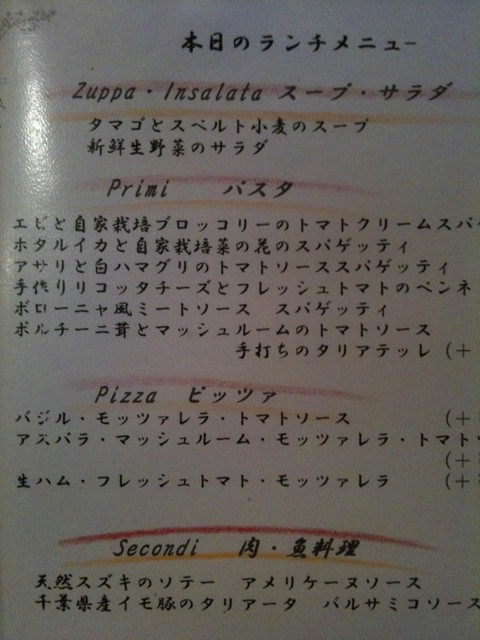 本日のランチメニュ-
Zuppa・Insalata スープ・サラダ
タマゴとスペルト小麦のスープ
新鮮生野菜のサラダ
Primi パスタ
エビと自家栽培ブロッコリーのトマトクリームスパ
ホタルイカと自家栽培菜の花のスパゲッティ
アサリと白ハマグリのトマトソーススパゲッティ
手作りリコッタチーズとフレッシュトマトのペンネ
ボローニャ風ミートソース スパゲッティ
ポルチーニ茸とマッシュルームのトマトソース
手打ちのタリアテッレ (+
Pizza ピッツァ
バジル・モッツァレラ・トマトソース (+
アスパラ・マッシュルーム・モッツァレラ・トマト
(+
生ハム・フレッシュトマト・モッツァレラ (+
Secondi 肉・魚料理
天然スズキのソテー アメリケーヌソース
千葉県産イモ豚のタリアータ バルサミコソース